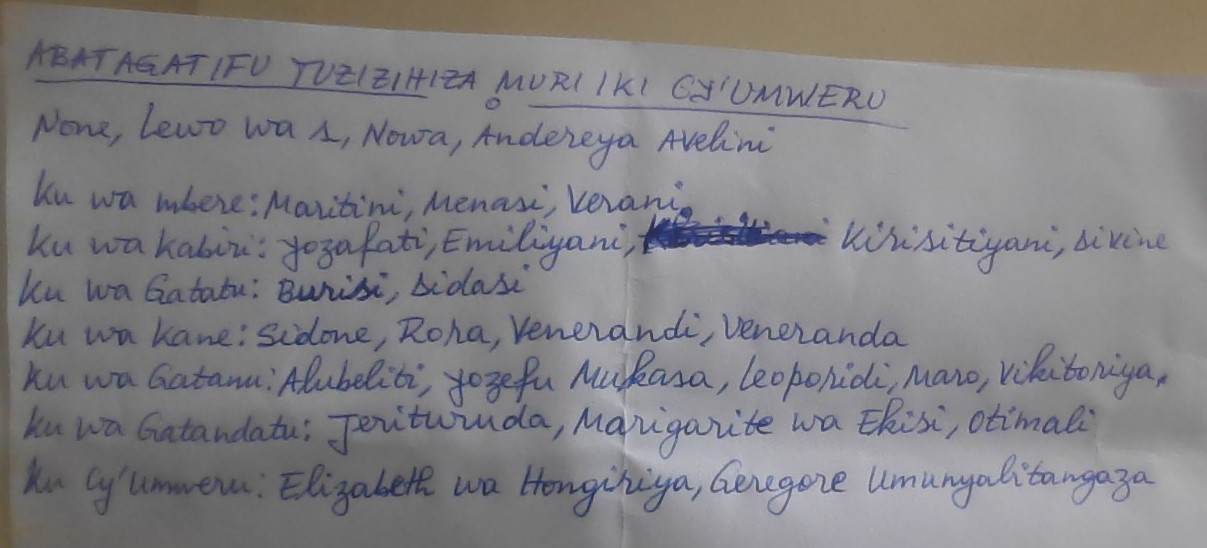 ABATAGATIFU TUZIZIHIZA MURI IKI CY'UMWERU
None, Lewo wa 1, Nowa, Andereya Avelini
Ku wa mbere: Maritini, Menasi, Verani.
Ku wa kabiri: Yozafati, Emiliyani, Kirisitiyani, Sivine
Ku wa Gatatu: Burisi, Sidasi
Ku wa kane: Sidone, Rora, Venerandi, Veneranda
Ku wa Gatanu: Alubeliti, Yozefu Mukasa, Leoporidi, Maro, Vikitoriya.
Ku wa Gatandatu: Jerituruda, Marigarite wa Ekisi, Otimali
Ku Cy'umweru: Elizabeth wa Hongiriya, Geregore Umunyabitangaza